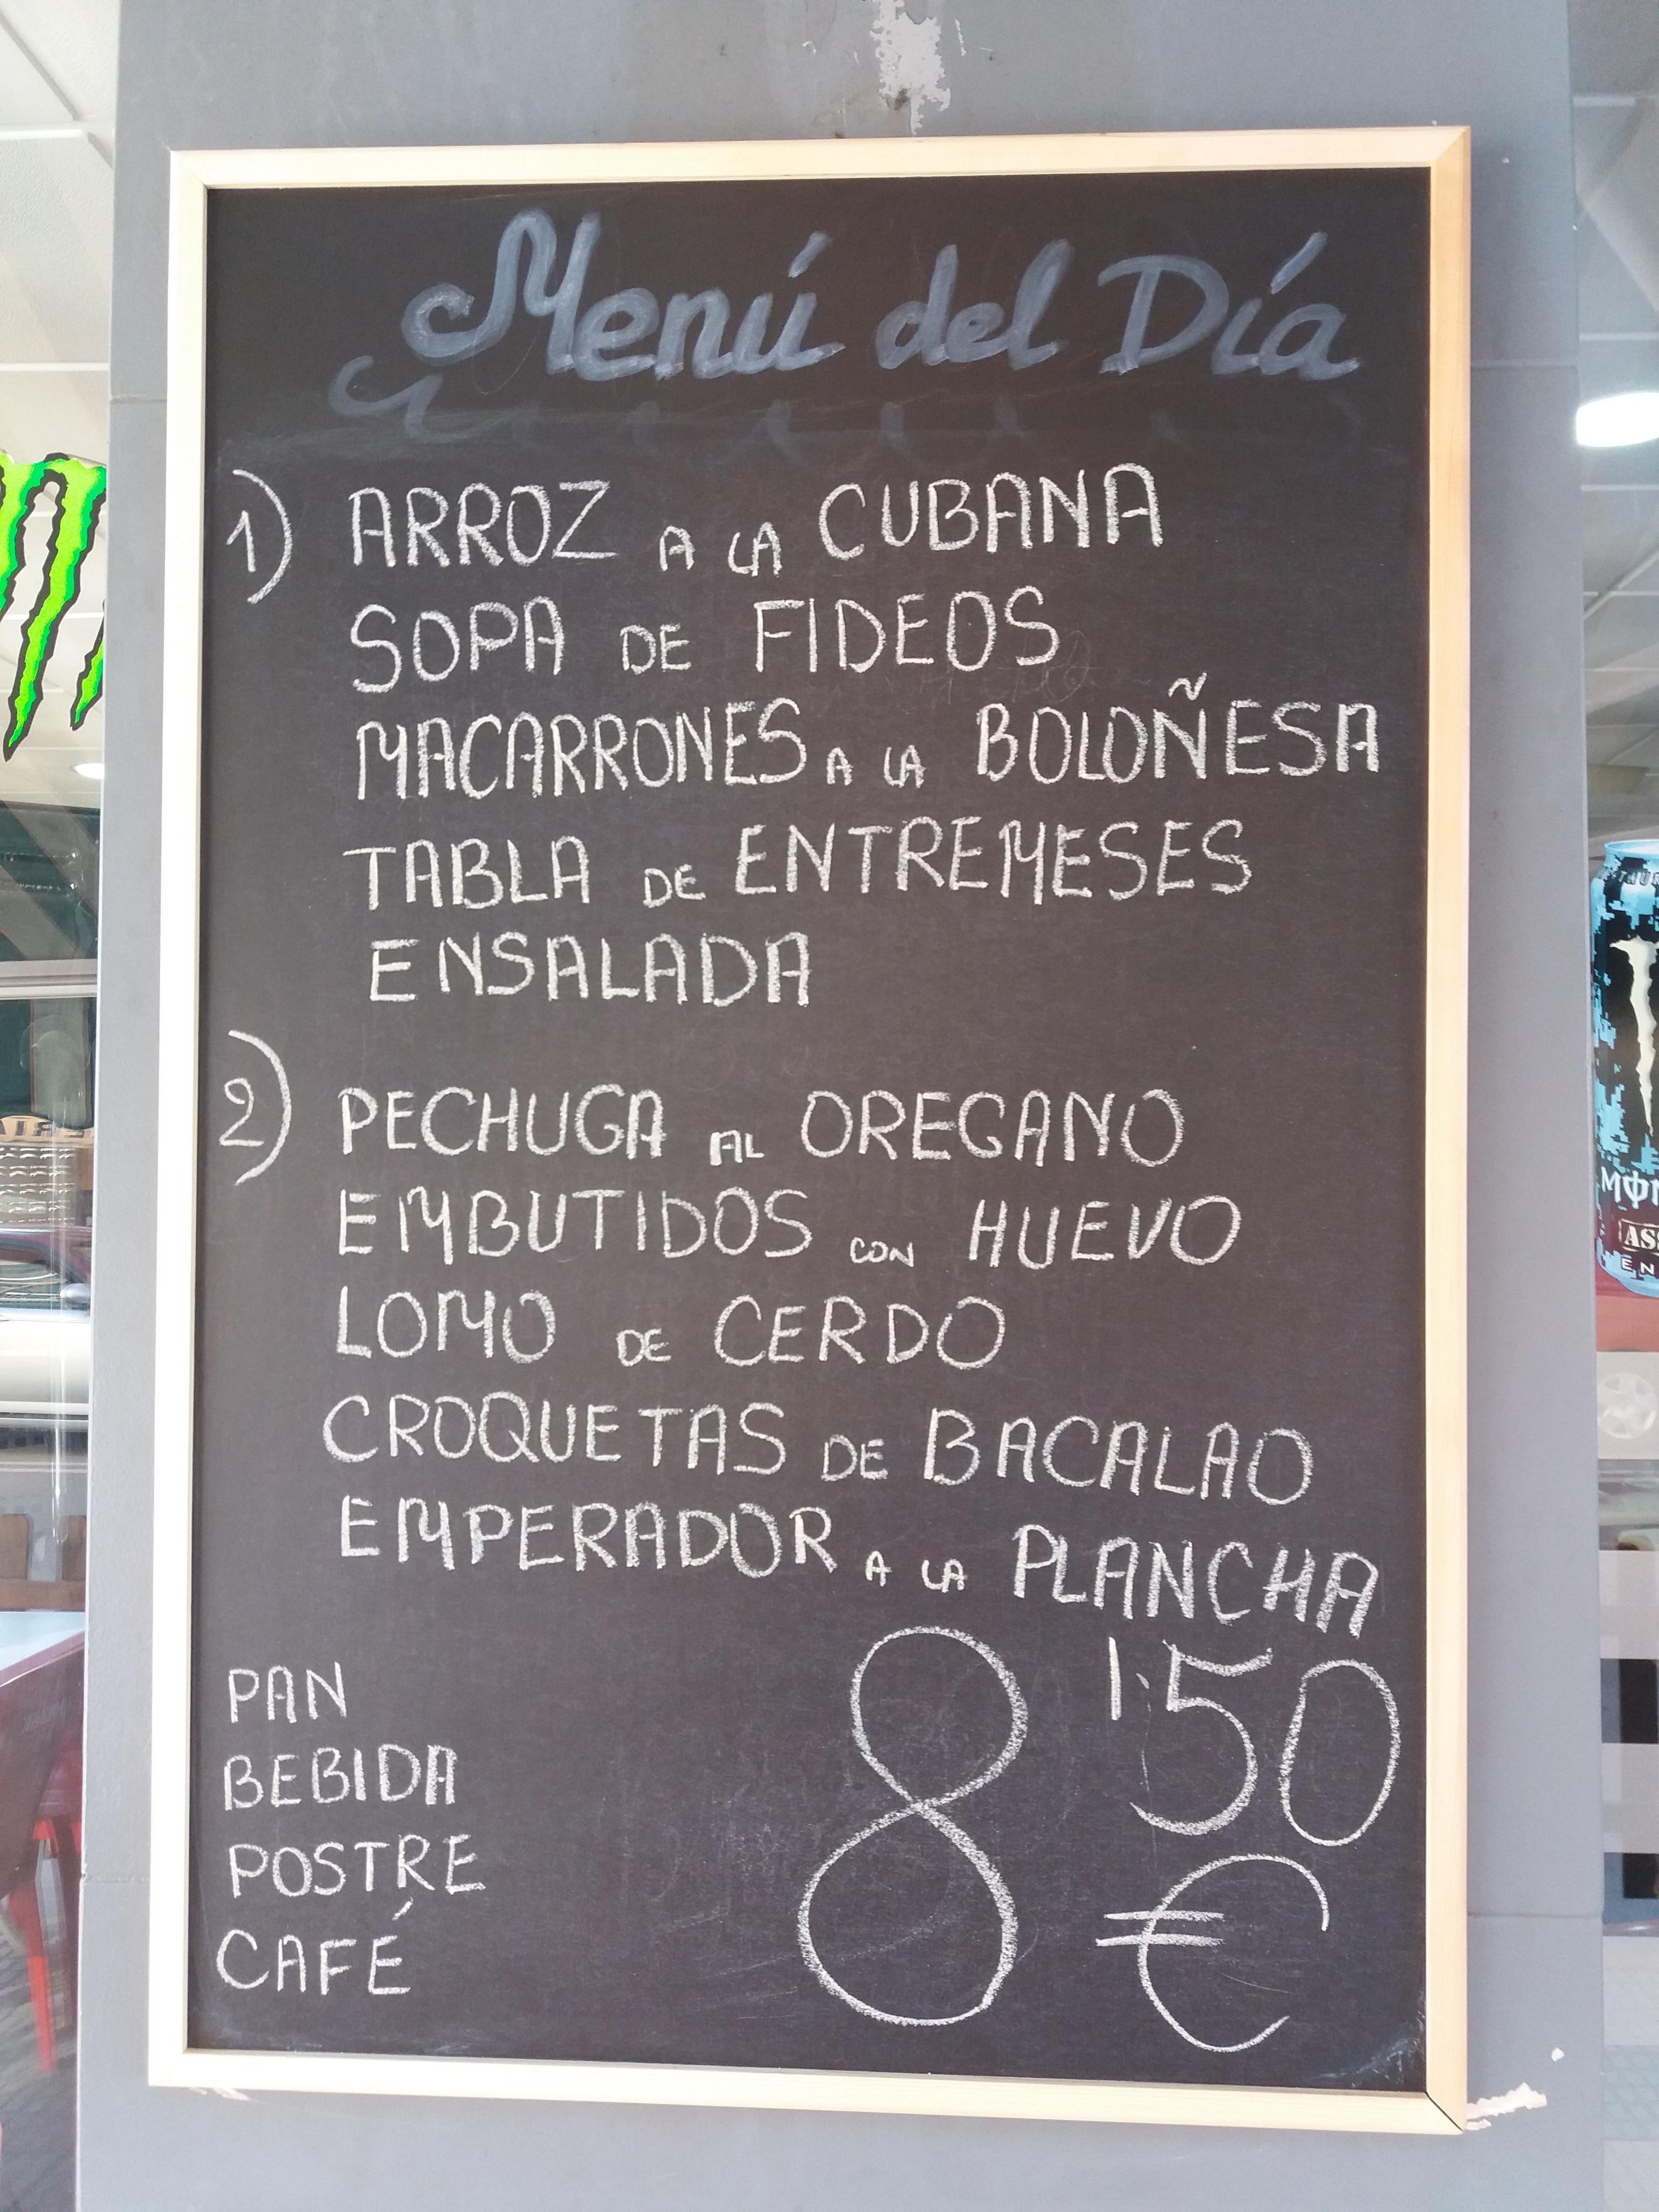 Menú del Día
1) ARROZ A LA CUBANA
SOPA DE FIDEOS
MACARRONES A LA BOLOÑESA
TABLA DE ENTREMESES
ENSALADA
2) PECHUGA AL OREGANO
EMBUTIDOS CON HUEVO
LOMO DE CERDO
CROQUETAS DE BACALAO
EMPERADOR A LA PLANCHA
PAN
BEBIDA
POSTRE
CAFÉ
8'50
€